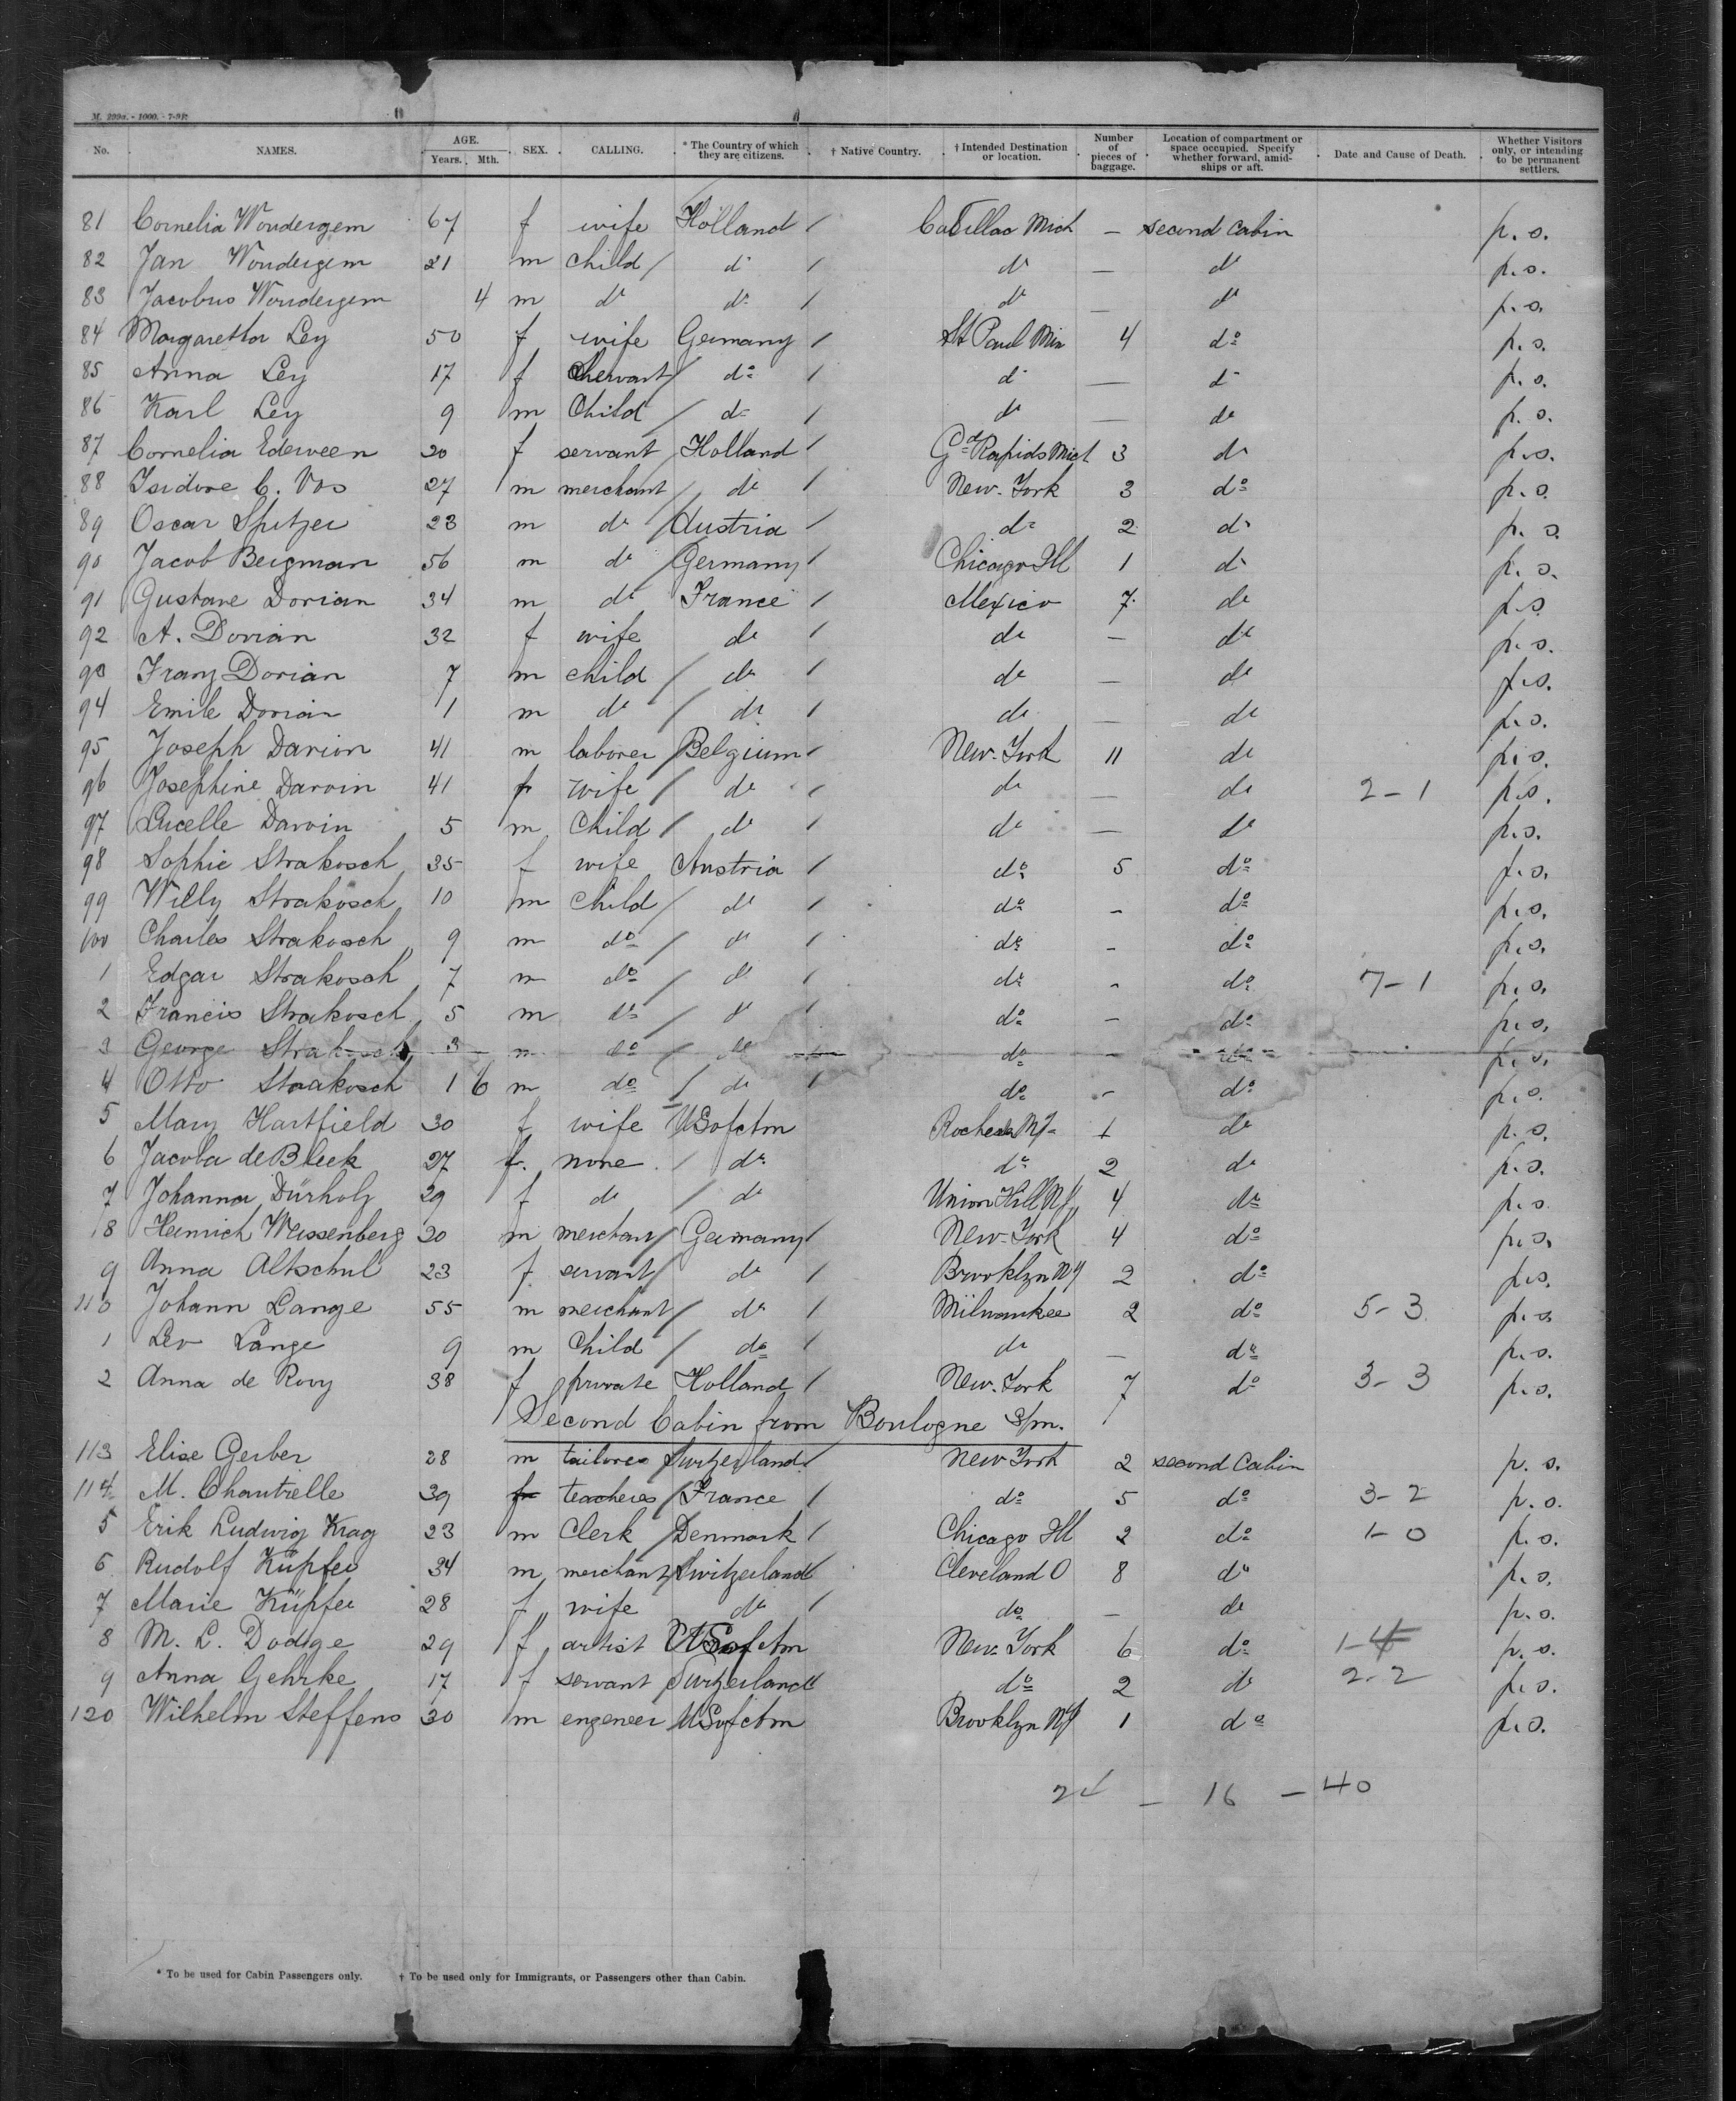 M. 299a. - 1000. - 7-91.
No. NAMES. AGE. Years. Mth. SEX. CALLING. * The Country of which they are citizens. † Native Country. † Intended Destination or location. Number of pieces of baggage. Location of compartment or space occupied. Specify whether forward, amidships or aft. Date and Cause of Death. Whether Visitors only, or intending to be permanent settlers.
81 Cornelia Wondergem 67 f wife Holland / Cadillac Mich — second cabin p. s.
82 Jan Wondergem 21 m child / do / do — do p. s.
83 Jacobus Wondergem 4 m do do / do — do p. s.
84 Margaretha Ley 50 f wife Germany / St Paul Min 4 do p. s.
85 Anna Ley 17 f servant / do / do — do p. s.
86 Karl Ley 9 m Child / do / do — do p. s.
87 Cornelia Ederveen 20 f servant Holland / Gd Rapids Mich 3 do p. s.
88 Isidore C. Vos 27 m merchant / do / New-York 3 do p. s.
89 Oscar Spitzer 23 m do / Austria / do 2 do p. s.
90 Jacob Bergman 56 m do / Germany / Chicago Ill 1 do p. s.
91 Gustave Dorian 34 m do France / Mexico 7 do p. s.
92 A. Dorian 32 f wife do / do — do p. s.
93 Franz Dorian 7 m child / do / do — do p. s.
94 Emile Dorian 1 m do / do / do — do p. s.
95 Joseph Darvin 41 m laborer / Belgium / New-York 11 do p. s.
96 Josephine Darvin 41 f wife / do / do — do 2-1 p. s.
97 Lucelle Darvin 5 m Child / do / do — do p. s.
98 Sophie Strakosch 35 f wife Austria / do 5 do p. s.
99 Willy Strakosch 10 m Child / do / do - do p. s.
100 Charles Strakosch 9 m do / do / do - do p. s.
1 Edgar Strakosch 7 m do / do / do - do 7-1 p. s.
2 Francis Strakosch 5 m do / do do - do p. s.
3 George Strakosch 3 m do / do do - do p. s.
4 Otto Strakosch 1 6 m do / do / do - do p. s.
5 Mary Hartfield 30 f wife US of Am 1 do p. s.
6 Jacoba de Bleek 27 f. none / do do 2 do p. s.
7 Johanna Dürholz 29 f do / do Union Hill NJ 4 do p. s.
8 Heinrich Weissenberg 30 m merchant / Germany / New-York 4 do p. s.
9 Anna Altschul 23 f servant / do / Brooklyn NY 2 do p. s.
110 Johann Lange 55 m merchant / do / Milwaukee 2 do 5-3 p. s.
1 Leo Lange 9 m Child / do / do — do p. s.
2 Anna de Rooy 38 f private Holland / New-York 7 do 3-3 p. s.
Second Cabin from Boulogne s/m.
113 Elise Gerber 28 m Switzerland / New York 2 second Cabin p. s.
114 M. Chantrelle 39 f teacheres / France / do 5 do 3-2 p. s.
5 Erik Ludwig Krag 23 m Clerk / Denmark / Chicago Ill 2 do 1-0 p. s.
6 Rudolf Küpfer 34 m merchant / Switzerland / Cleveland O 8 do p. s.
7 Marie Küpfer 28 f wife do / do — do p. s.
8 M. L. Dodge 29 f artist US of Am New-York 6 do p. s.
9 Anna Gehrke 17 f servant Switzerland / do 2 do 2-2 p. s.
120 Wilhelm Steffens 30 m engeneer US of Am Brooklyn NY 1 do p. s.
24 — 16 — 40
* To be used for Cabin Passengers only. † To be used only for Immigrants, or Passengers other than Cabin.